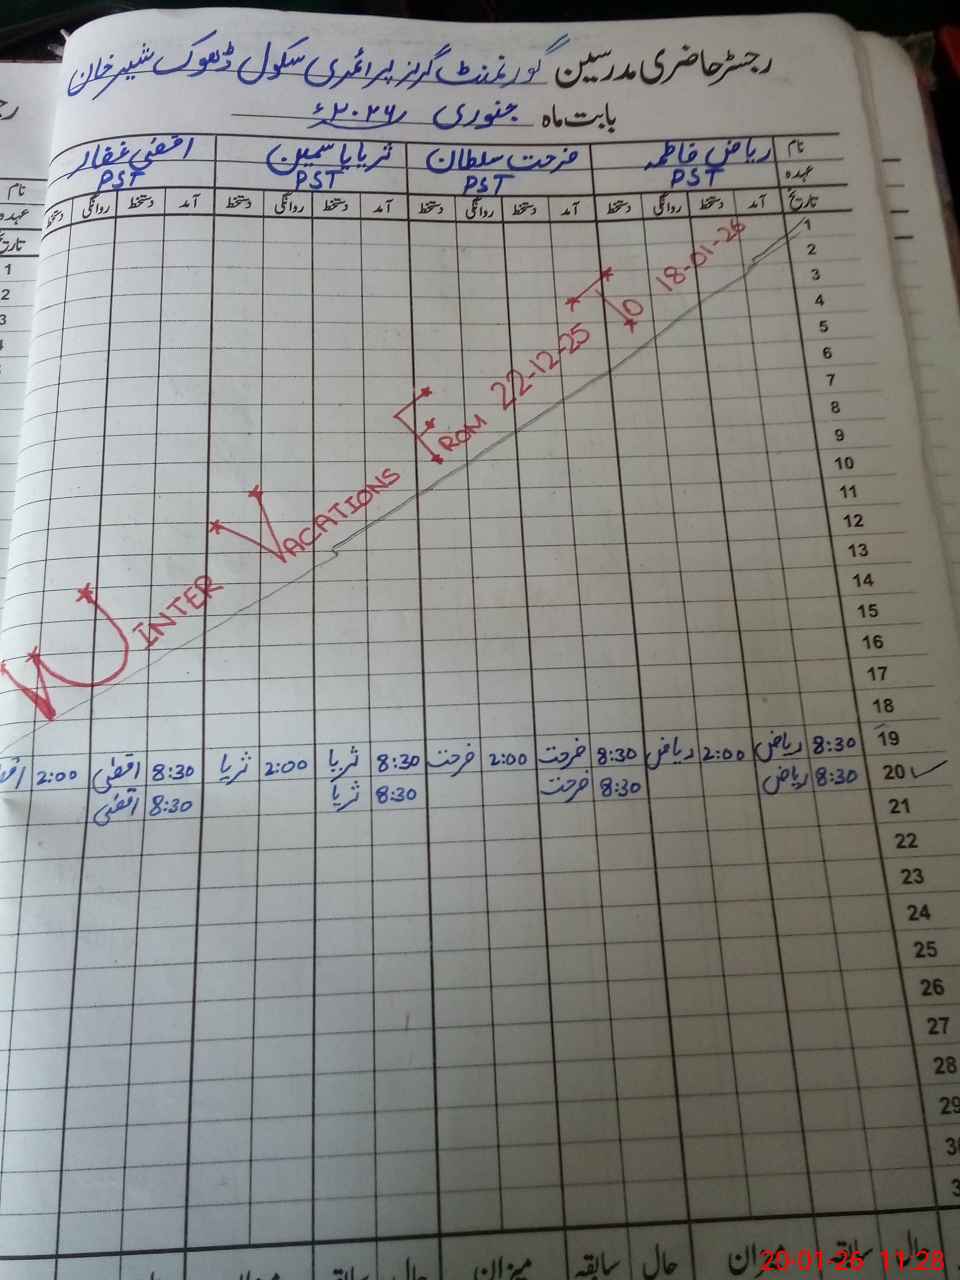 رجسٹر حاضری مدرسین گورنمنٹ گرلز پرائمری سکول ڈھوک شیر خان
بابت ماہ جنوری ۲۰۲۶ء
نام ریاض فاطمہ فرحت سلطان ثریا یاسمین اقصٰی غفار
عہدہ PST PST PST PST
تاریخ آمد دستخط روانگی دستخط آمد دستخط روانگی دستخط آمد دستخط روانگی دستخط آمد دستخط روانگی دستخط
1
2
3
4
5
6
7
8
9
10
11
12
13
14
15
16
17
18
WINTER VACATIONS FROM 22-12-25 TO 18-01-26
19 8:30 ریاض 2:00 ریاض 8:30 فرحت 2:00 فرحت 8:30 ثریا 2:00 ثریا 8:30 اقصٰی 2:00
20 8:30 ریاض 8:30 فرحت 8:30 ثریا 8:30 اقصٰی
21
22
23
24
25
26
27
28
29
حال سابقہ میزان حال سابقہ میزان حال سابقہ
نام
عہدہ
تاریخ
1
2
3
20-01-26 11:28